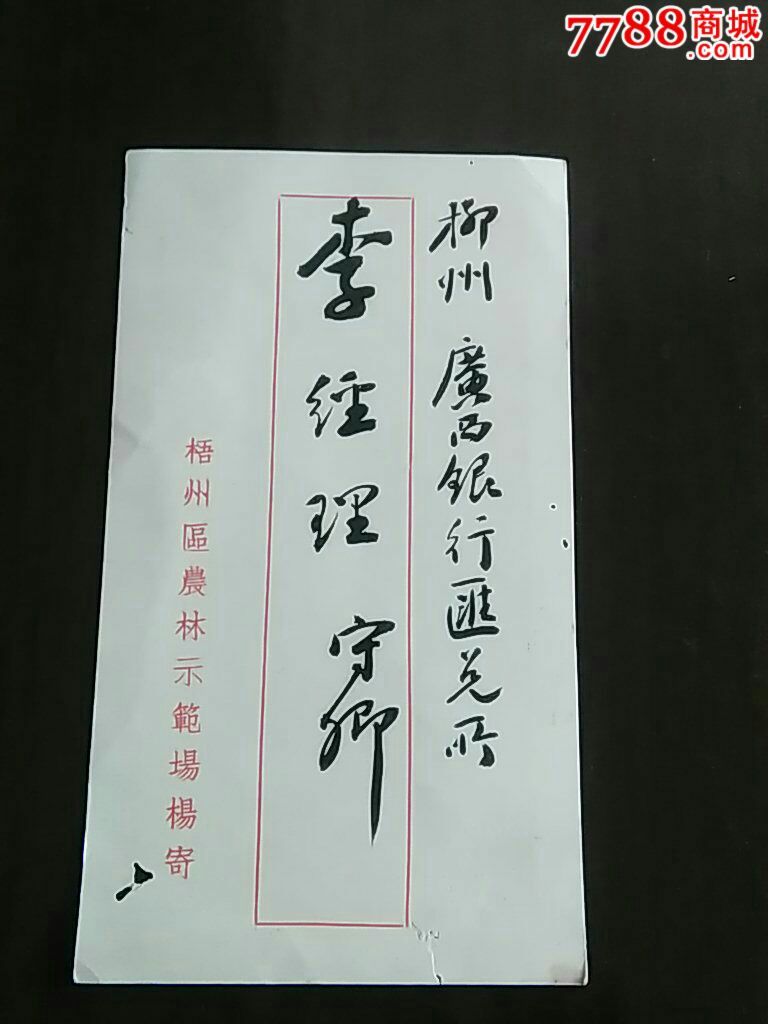 7788商城
.com
柳州 廣西銀行匯兑所
李經理守卿
梧州區農林示範場楊寄